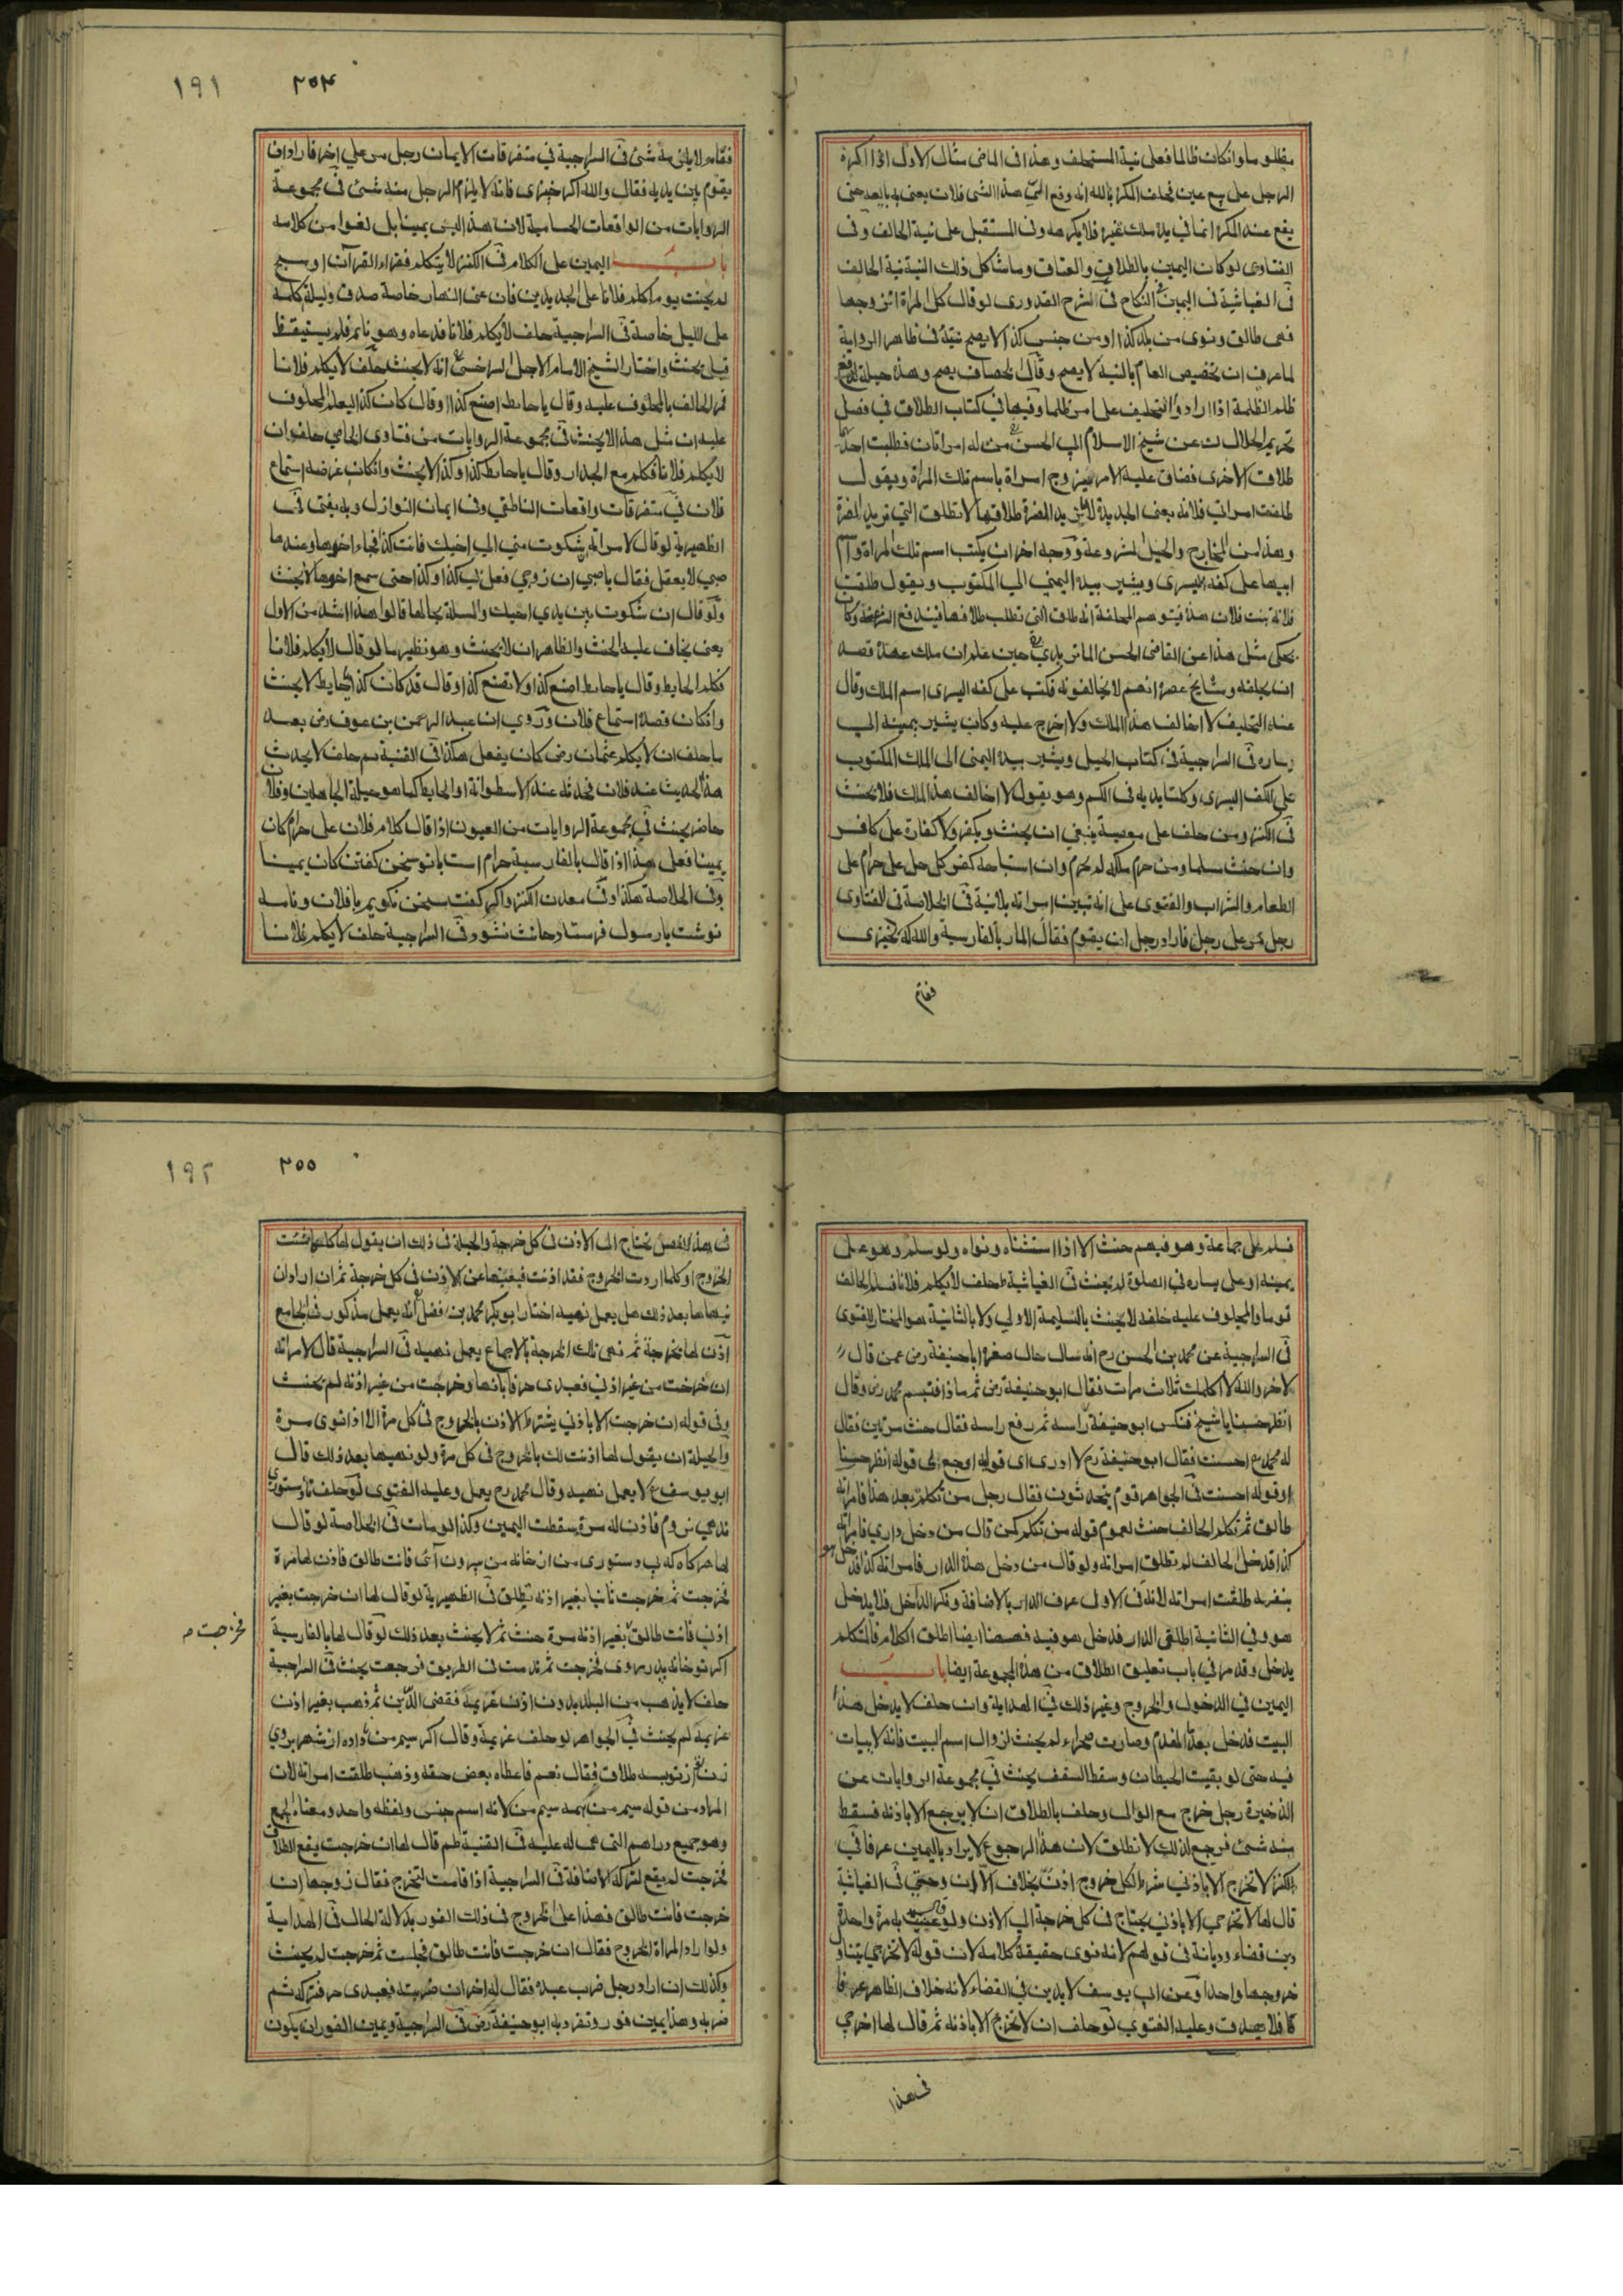 مظلوما وانكان ظالما فعلى نية المستحلف وهذا فى الماضى مثال الاول اذا اكره
الرجل على بيع عين فحلف المكره بالله انه دفع هذا الشئ فلان يعنى به بايعه حتى
يقع عند المكره انما في يده ملك غيره فلا يكرهه وفى المستقبل على نية الحالف وفى
الفتاوى لو كان اليمين بالطلاق والعتاق وما شاكل ذلك النية نية الحالف
فى الغياثية فى اليمين فى النكاح فى الشرح القدورى لو قال كل امراة اتزوجها
فهى طالق ونوى من بلد كذا او من جنس كذا لا يصح نيته فى ظاهر الرواية
لما عرف ان تخصيص العام بالنية لا يصح وقال الخصاف يصح وهذه حيلة لدفع
ظلم الظلمة اذا ارادوا التحليف على امر ظلما وفيها في كتاب الطلاق في فصل
تحريم الحلال عن شيخ الاسلام ابي الحسن من له امراتان فطلبت احديهما
طلاق الاخرى فضاق عليه الامر يتزوج امراة باسم تلك المراة ويقول
طلقت امراتي فلانة يعنى الجديدة لا التى يريد المضرة طلاقها لا تطلق التي تريد المضرة
وهذا من المخارج والحيل المشروعة ووجه اخر ان يكتب اسم تلك المراة واسم
ابيها على كفه اليسرى ويشير بيده اليمني الي المكتوب ويقول طلقت
فلانة بنت فلان هذه فيتوهم انه طلق التي تطلب طلاقها فيندفع وكان
يحكى مثل هذا عن القاضى الحسن الماتريدي حين علم ان ملك عهده قصد
ان يحلفه ومشايخ عصره انهم لا يخالفونه فكتب على كفه اليسرى اسم الملك وقال
عند التحليف لا اخالف هذا الملك ولا اخرج عليه وكان يشير بيمينه الى
يساره فى السراجية فى كتاب الحيل ويشير بيده اليمنى الى الملك المكتوب
على الكف اليسرى وكلتا يديه فى الكم وهو يقول لا اخالف هذا الملك فلا يحنث
فى الكنز ومن حلف على معصية ينبغي ان يحنث ويكفر ولا كفارة على كافر
وان حنث مسلما ومن حرم ملكه لم يحرم وان استباحه كفر كل حل على حرام على
الطعام والشراب والفتوى على انه تبين امراته بلا نية فى الخلاصة فى الفتاوى
رجل مر على رجل فاراد رجل ان يقوم فقال المار بالفارسية والله كه نخيزى
فقام
٢٥٤
١٩١
فقام لا يلزمه شئ فى السراجية في متفرقات الايمان رجل مر علي اخر فاراد ان
يقوم بين يديه فقال والله اكر خيزى فانه لا يلزم الرجل منه شئ فى مجموعة
الروايات من الواقعات الحسامية لان هذا ليس يمينا بل لغوا من كلامه
باب اليمين على الكلام فى الكنز لا يتكلم فقراء القرآن او سبح
لم يحنث يوم اكلم فلانا على الجديدين فان عنى النهار خاصة صدق وليلة كلمه
على الليل خاصة فى السراجية حلف لا يكلم فلانا فدعاه وهو نائم فلم يستيقظ
قيل يحنث واختار الشيخ الامام الاجل السرخسى انه لا يحنث حلف لا يكلم فلانا
فمر الحالف بالمحلوف عليه وقال يا حايط اصنع كذا او قال كان كذا ليعلم المحلوف
عليه ان مثل هذا لا يحنث فى مجموعة الروايات من فتاوى حلف ان
لا يكلم فلانا فكلم مع الجدار وقال يا حايط كذا وكذا لا يحنث وانكان غرضه استماع
فلان في متفرقات واقعات الناطفي وفى ايمان النوازل وبه يفتى فى
الظهيرية لو قال لامراته شكوت مني الى اخيك فانت كذا فجاء اخوها وعندها
صبي لا يعقل فقال يا صبي ان زوجي فعل بي كذا وكذا حتى سمع اخوها لا يحنث
ولو قال ان شكوت بين يدي اخيك والمسئلة بحالها قالوا هذا اشد من الاول
يعنى يخاف عليه الحنث والظاهر ان لا يحنث وهو نظير ما لو قال لا يكلم فلانا
فكلم الحايط وقال يا حايط اصنع كذا ولا تصنع كذا وقال قد كان كذا يا حايط لا يحنث
وانكان قصده استماع فلان وروي ان عبد الرحمن بن عوف رض بعد
ما حلف ان لا يكلم عثمان رض كان يفعل هكذا فى القنية حلف لا يحدث
هذا الحديث عند فلان فحدثه عند الاسطوانة او الحايط كما هو حيلة الجاهلين وفلان
حاضر يحنث في مجموعة الروايات من العيون اذا قال كلام فلان على حرام كان
يمينا فعلى هذا اذا قال بالفارسية حرام است با تو سخن كفتن كان يمينا
وفى الخلاصة هكذا وفى معدن الكنز واكر كفت سخن نكويم با فلان ونامه
نوشت يا رسول فرستاد حانث نشود فى السراجية حلف لا يكلم فلانا
فسلم على جماعة وهو فيهم حنث الا اذا استثناه ونواه ولو سلم وهو على
يمينه او على يساره في الصلوة لم يحنث فى الغياثية حلف لا يكلم فلانا فسلم الحالف
قوما والمحلوف عليه خلفه لا يحنث بالتسليمة الاولى ولا بالثانية هو المختار للفتوى
فى السراجية عن محمد بن الحسن رح انه سال حال صغره ابا حنيفة رض عمن قال
لاخر والله لا اكلمك ثلاث مرات فقال ابو حنيفة رض ثم ماذا فتبسم محمد رض وقال
انظر حسنا يا شيخ فنكس ابو حنيفة راسه ثم رفع راسه فقال حنث مرتين فقال
له محمد رح احسنت فقال ابو حنيفة رح لا ادرى اى قوليه اوجع لى قوله انظر حسنا
او قوله احسنت في الجواهر قوم يتحدثون فقال رجل من تكلم بعد هذا فامراته
طالق ثم تكلم الحالف حنث لعموم قوله من تكلم كمن قال من دخل داري فامراته
كذا فدخل الحالف لم تطلق امراته ولو قال من دخل هذه الدار فامراته كذا فدخل هو
بنفسه طلقت امراته لانه فى الاولى عرف الدار بالاضافة ونكر الداخل فلا يدخل
هو وفي الثانية اطلق الدار فدخل هو فيه فههنا ايضا اطلق الكلام فالمتكلم
يدخل وقد مر في باب تعليق الطلاق من هذه المجموعة ايضا باب
اليمين في الدخول والخروج وغير ذلك في الهداية وان حلف لا يدخل هذا
البيت فدخل بعد ما انهدم وصارت صحراء لم يحنث لزوال اسم البيت فانه لا يبات
فيه حتى لو بقيت الحيطان وسقط السقف يحنث في مجموعة الروايات عن
الذخيرة رجل خرج مع الوالى وحلف بالطلاق ان لا يرجع الا باذنه فسقط
منه شئ فرجع لذلك لا تطلق لان هذا الرجوع لا يراد باليمين عرفا في
الكنز لا تخرج الا باذني شرط لكل خروج اذن بخلاف الا ان وحتى فى الغياثية
قال لها لا تخرجي الا باذني يحتاج فى كل خرجة الى الاذن ولو عنيت به مرة واحدة
دين قضاء وديانة فى قولهم لانه نوى حقيقة كلامه لان قوله لا تخرجي يتناول
خروجها واحدا وعن ابى يوسف لا يدين في القضاء لانه خلاف الظاهر عرفا
فلا يصدق وعليه الفتوي لو حلف ان لا تخرج الا باذنه ثم قال لها اخرجي
فى هذا
٢٥٥
١٩٢
فى هذا الفصل تحتاج الى الاذن فى كل خرجة والحيلة فى ذلك ان يقول لها كلما شئت
الخروج او كلما اردت الخروج فقد اذنت فيغنيها عن الاذن في كل خرجة ثم ان اراد ان
ينهاها بعد ذلك هل يعمل نهيه اختار ابو بكر محمد بن فضل انه يعمل مذكور فى الجامع
اذن لها بخرجة ثم نهى تلك الخرجة بالاجماع يعمل نهيه فى السراجية قال لامراته
ان خرجت من غير اذني فعبدى حر فاباتها وخرجت من غير اذنه لم يحنث
وفى قوله ان خرجت الا باذني يشترط الاذن بالخروج فى كل مرة الا اذا نوى مرة
والحيلة ان يقول لها اذنت لك بالخروج فى كل مرة ولو نهيها بعد ذلك قال
ابو يوسف لا يعمل نهيه وقال محمد رح يعمل وعليه الفتوى لو حلف تا دستورى
ندهي نروم فاذن له مرة سقطت اليمين وكذا لو مات فى الخلاصة لو قال
لها هركاه كه بى دستورى من از خانه من بيرون آئى فانت طالق فاذن لها مرة
فخرجت ثم خرجت ثانيا بغير اذنه تطلق فى الظهيرية لو قال لها ان خرجت بغير
اذني فانت طالق بغير اذنه مرة حنث ثم لا يحنث بعد ذلك لو قال لها بالفارسية
فخرجت م
اكر تو خانه پدر روى فخرجت ثم ندمت فى الطريق فرجعت يحنث فى السراجية
حلف لا يذهب من البلد بدون اذن غريمه فقضى الدين ثم ذهب بغير اذن
غريمه لم يحنث في الجواهر لو حلف غريمه وقال اكر سيم من نداده از شهر بروي
زن از تو بسه طلاق فقال نعم فاعطاه بعض حقه وذهب طلقت امراته لان
المراد من قوله سيم من همه سيم من لانه اسم جنس ولفظه واحد ومعناه الجمع
وهو جميع دراهم التى له عليه فى القنية قال لها ان خرجت يقع الطلاق
فخرجت لم يقع لتركه الاضافة فى السراجية اذا قامت لتخرج فقال زوجها ان
خرجت فانت طالق فهذا على الخروج فى ذلك الفور بدلالة الحال فى الهداية
ولو اراد المراة الخروج فقال ان خرجت فانت طالق فجلست ثم خرجت لم يحنث
وكذلك ان اراد رجل ضرب عبده فقال له اخر ان ضربته فعبدى حر فتركه ثم
ضربه وهذا يمين فور وتفرد به ابو حنيفة رض فى السراجية ويمين الفور ان يكون